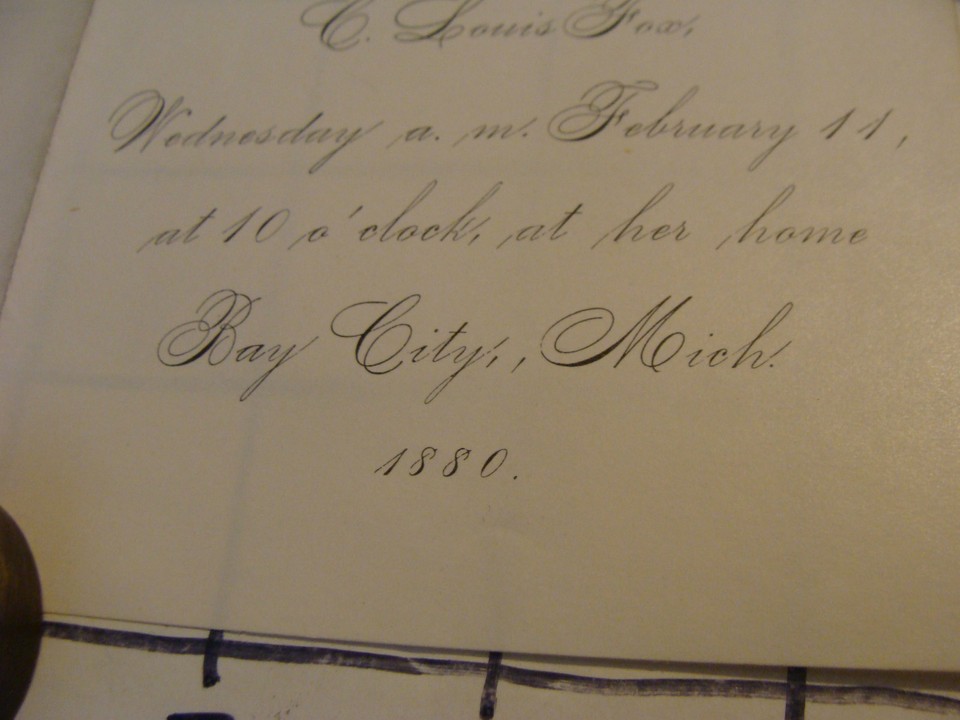 C. Louis Fox,
Wednesday a. m. February 11,
at 10 o'clock, at her home
Bay City, Mich.
1880.